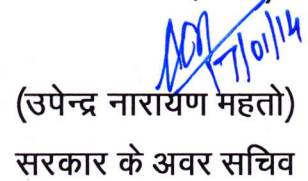 17/01/14
(उपेन्द्र नारायण महतो)
सरकार के अवर सचिव